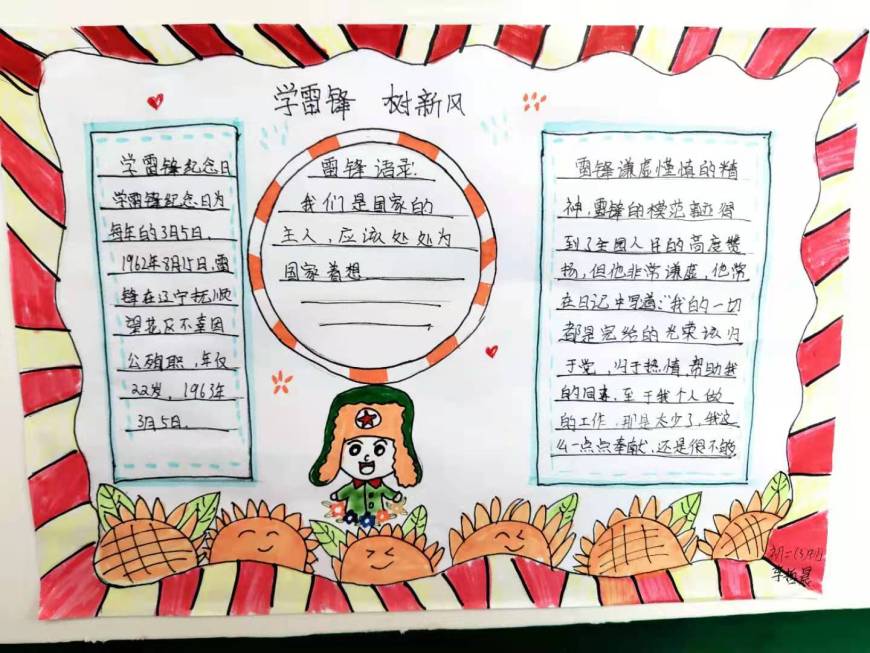 学雷锋 树新风
学雷锋纪念日
学雷锋纪念日为
每年的3月5日.
1962年8月15日,雷
锋在辽宁抚顺
望花区不幸因
公殉职,年仅
22岁,1963年
3月5日.
雷锋语录:
我们是国家的
主人,应该处处为
国家着想
雷锋谦虚谨慎的精
神,雷锋的模范事迹得
到了全国人民的高度赞
扬,但他非常谦虚,他常
在日记中写道:"我的一切
都是党给的光荣该归
于党,归于热情帮助我
的同志,至于我个人做
的工作,那是太少了,我这
么一点点奉献,还是很不够